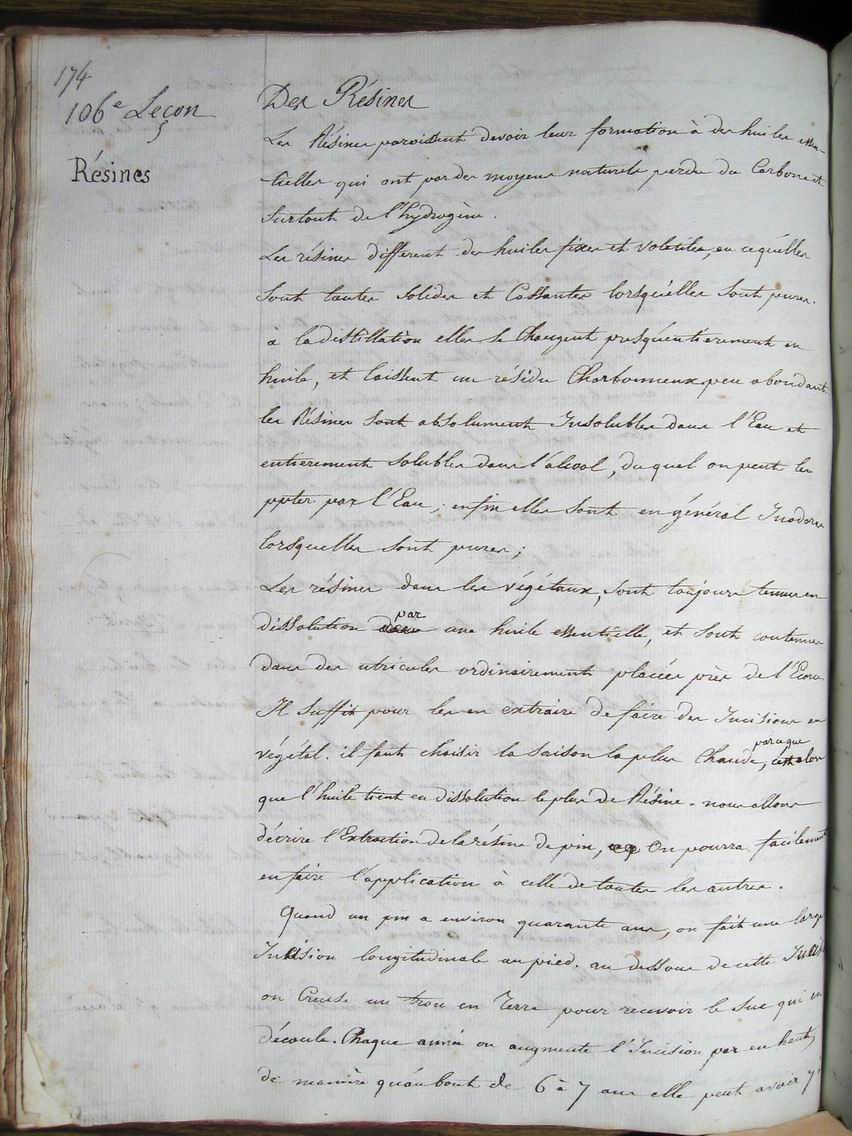 174
106e Leçon
Résines
Des Résines
Les Résines paroissent devoir leur formation à des huiles essen-
tielles qui ont par des moyens naturels perdu du Carbone et
surtout de l'hydrogène.
Les résines different des huiles fixes et volatiles, en ce qu'elles
sont toutes solides et Cassantes lorsqu'elles sont pures.
à la distillation elles se Changent presqu'entierement en
huile, et laissent un résidu Charbonneux peu abondant.
les Résines sont absolument Insolubles dans l'Eau et
entierement solubles dans l'alcool, duquel on peut les
ppter par l'Eau; enfin elles sont en général Inodores
lorsquelles sont pures;
Les résines dans les végétaux, sont toujours tenues en
dissolution par une huile essentielle, et sont contenues
dans des utricules ordinairement placées près de l'Ecorce.
Il suffit pour les en extraire de faire des Incisions au
végétal. il faut choisir la saison la plus Chaude, parceque c'est alors
que l'huile tient en dissolution le plus de Résine. nous allons
décrire l'Extraction de la résine de pin, On pourra facilement
en faire l'application à celle de toutes les autres.
Quand un pin a environ quarante ans, on fait une large
Incision longitudinale au pied. au dessous de cette Incision
on Creuse un trou en Terre pour recevoir le suc qui en
découle. Chaque année on augmente l'Incision par en haut,
de manière qu'au bout de 6 à 7 ans elle peut avoir